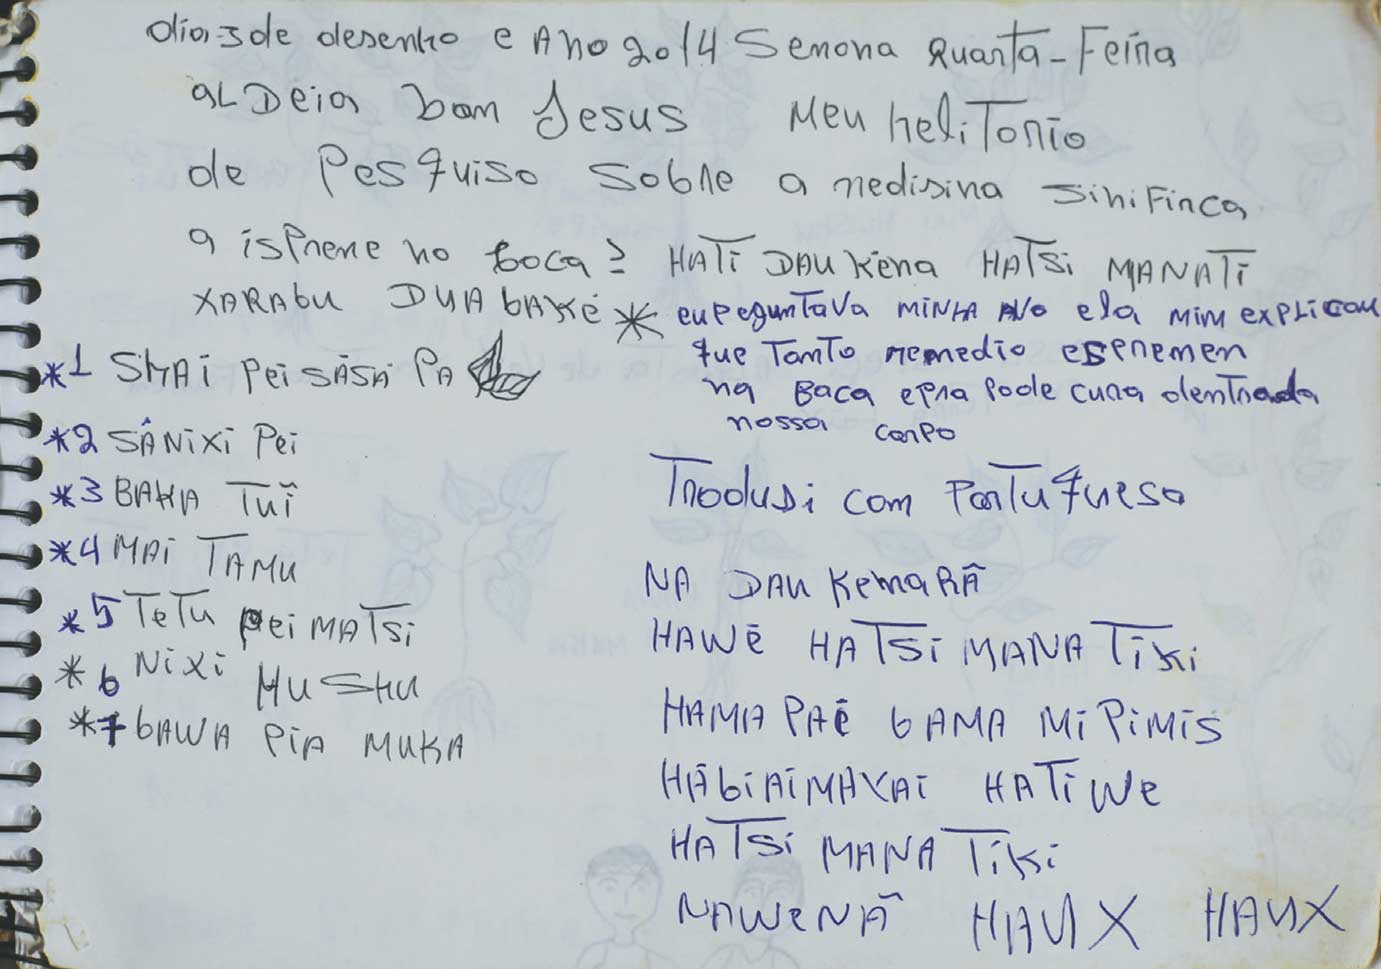 dia 3 de desenho e Ano 2014 Semana Quarta-Feira
aLDeia bom Jesus Meu heliTorio
de Pesquiso sobre a nedisina sinifinca
a ispreme no boca? HATi DAUKena HATSi MANATi
XARABU DUABAKE
* eu peguntava MiNHA AVO ela mim expLicou
que Tanto Remedio espremen
na Baca epra Pode cura dentroda
nossa corpo
*1 SHAI Pei SÃSA PA
*2 SÂNiXi Pei
*3 BAKA TUĨ
*4 MAi TAMU
*5 TeTu Pei MATSi
*6 NiXi HUSHU
*7 bAWA PiA MUKA
Tradusi com Portuqueso
NA DAU KemaRÃ
HAWĒ HATSi MANATiKi
HAMAPAĒ bAMA MiPiMiS
HÃbiAiMAKAi HATiWe
HATSi MANATiKi
NAWeNÃ HAUX HAUX